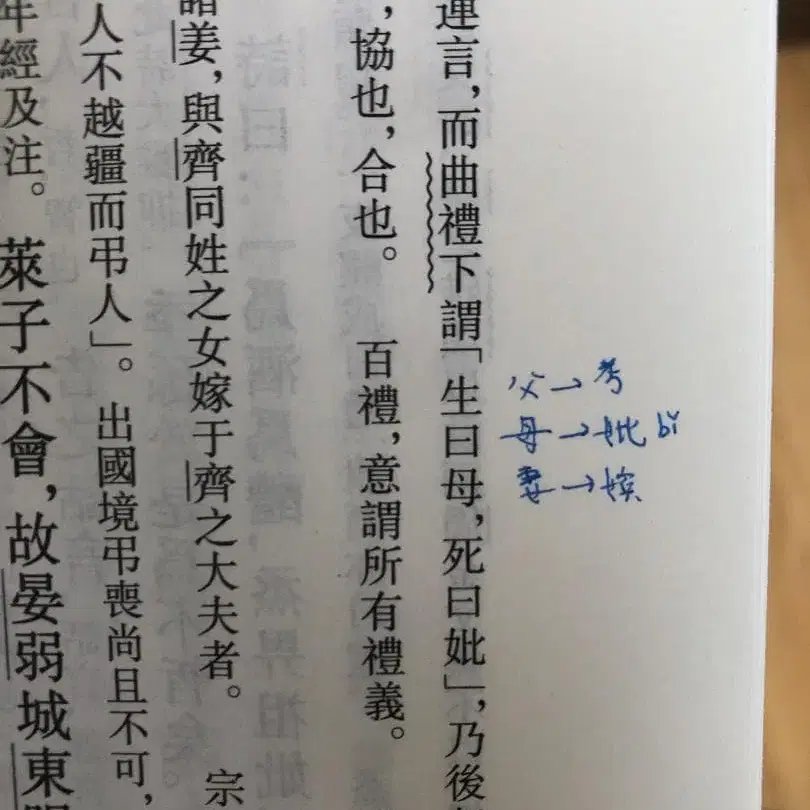 連言，而曲禮下謂「生曰母，死曰妣」，乃後
，協也，合也。　百禮，意謂所有禮義。
諸姜，與齊同姓之女嫁于齊之大夫者。　宗
人不越疆而弔人」。出國境弔喪尚且不可，
年經及注。　萊子不會，故晏弱城東
父→考
母→妣 bǐ
妻→嬪